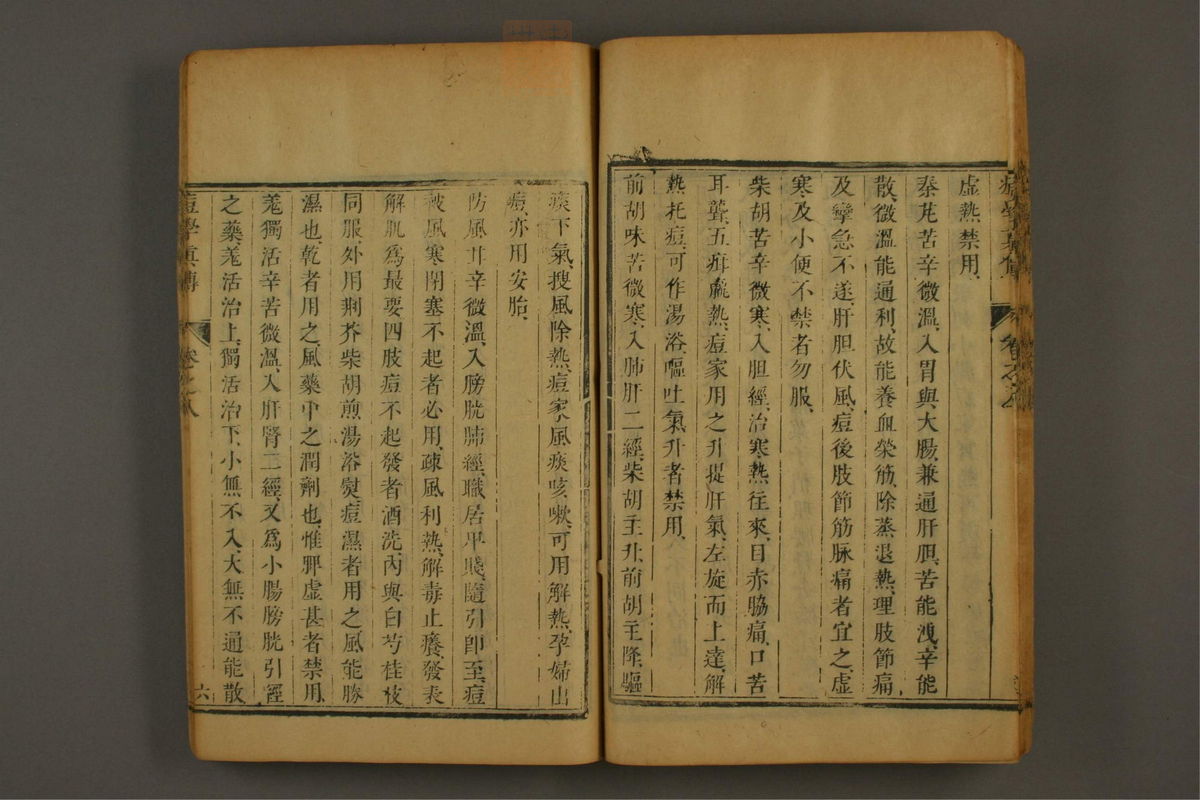 虛熱禁用、
秦艽苦辛微溫、入胃與大腸、兼通肝胆、苦能洩、辛能
散、微溫能通利、故能養血榮筋、除蒸退熱、理肢節痛
及攣急不遂、肝胆伏風、痘後肢節筋脉痛者宜之、虛
寒及小便不禁者勿服、
柴胡苦辛微寒、入胆經、治寒熱往來、目赤脇痛、口苦
耳聾、五疳羸熱、痘家用之升提肝氣、左旋而上達、解
熱托痘、可作湯浴、嘔吐氣升者禁用、
前胡味苦微寒、入肺肝二經、柴胡主升、前胡主降、驅
痰下氣、搜風除熱、痘家風痰咳嗽、可用解熱、孕婦出
痘、亦用安胎、
防風甘辛微溫、入膀胱肺經、職居卑賤、隨引即至、痘
被風寒閉塞不起者必用、疎風利熱、解毒止癢、發表
解肌爲最要、四肢痘不起發者酒洗、內與白芍桂枝
同服、外用荆芥柴胡煎湯浴熨、痘濕者用之、風能勝
濕也、乾者用之、風藥中之潤劑也、惟脾虛甚者禁用、
羗獨活辛苦微溫、入肝腎二經、又爲小腸膀胱引經
之藥、羗活治上、獨活治下、小無不入、大無不通、能散
痘學眞傳
卷之八
六